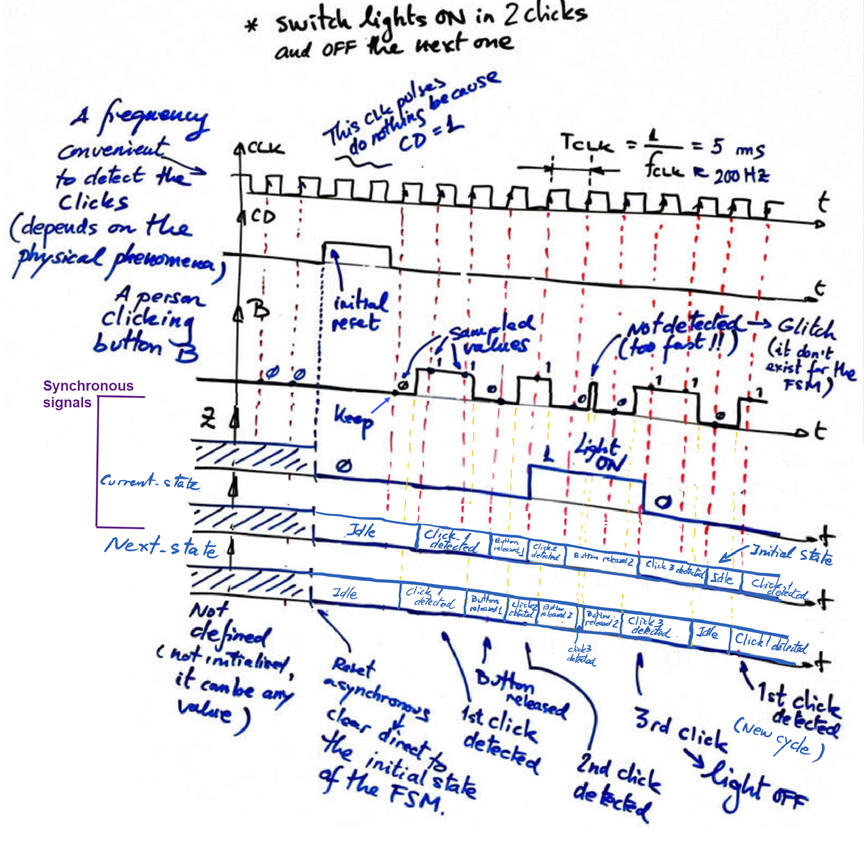 * switch lights ON in 2 clicks
and OFF the next one
A frequency
convenient
to detect the
clicks
(depends on the
physical phenomena)
This CLK pulses
do nothing because
CD = 1
CLK
TCLK = 1/fCLK = 5 ms
200 HZ
t
CD
initial
reset
t
A person
clicking
button B
B
Ø Ø
Keep
Ø
1 1
Sampled
values
0
1
Not detected → Glitch
(too fast!!)
(it don't
exist for the
FSM)
0 0
1 1
0
1
t
Synchronous
signals
Z
Ø
1
Light
ON
0
t
Current-state
Idle
Click 1
detected
Button
released 1
Click 2
detected
Button released 2
Click 3 detected
Idle
Click 1
detected
Initial state
t
Next-state
Idle
Click 1
detected
Button
released 1
Click 2
detected
Button
released 2
click 3
detected
Button
released 2
Click 3
detected
Idle
Click 1 detected
t
Not
defined
(not initialised,
it can be any
value)
Reset
asynchronous
clear direct to
the initial state
of the FSM.
1st click
detected
Button
released
2nd click
detected
3rd click
→ light OFF
1st click
detected
(New cycle)